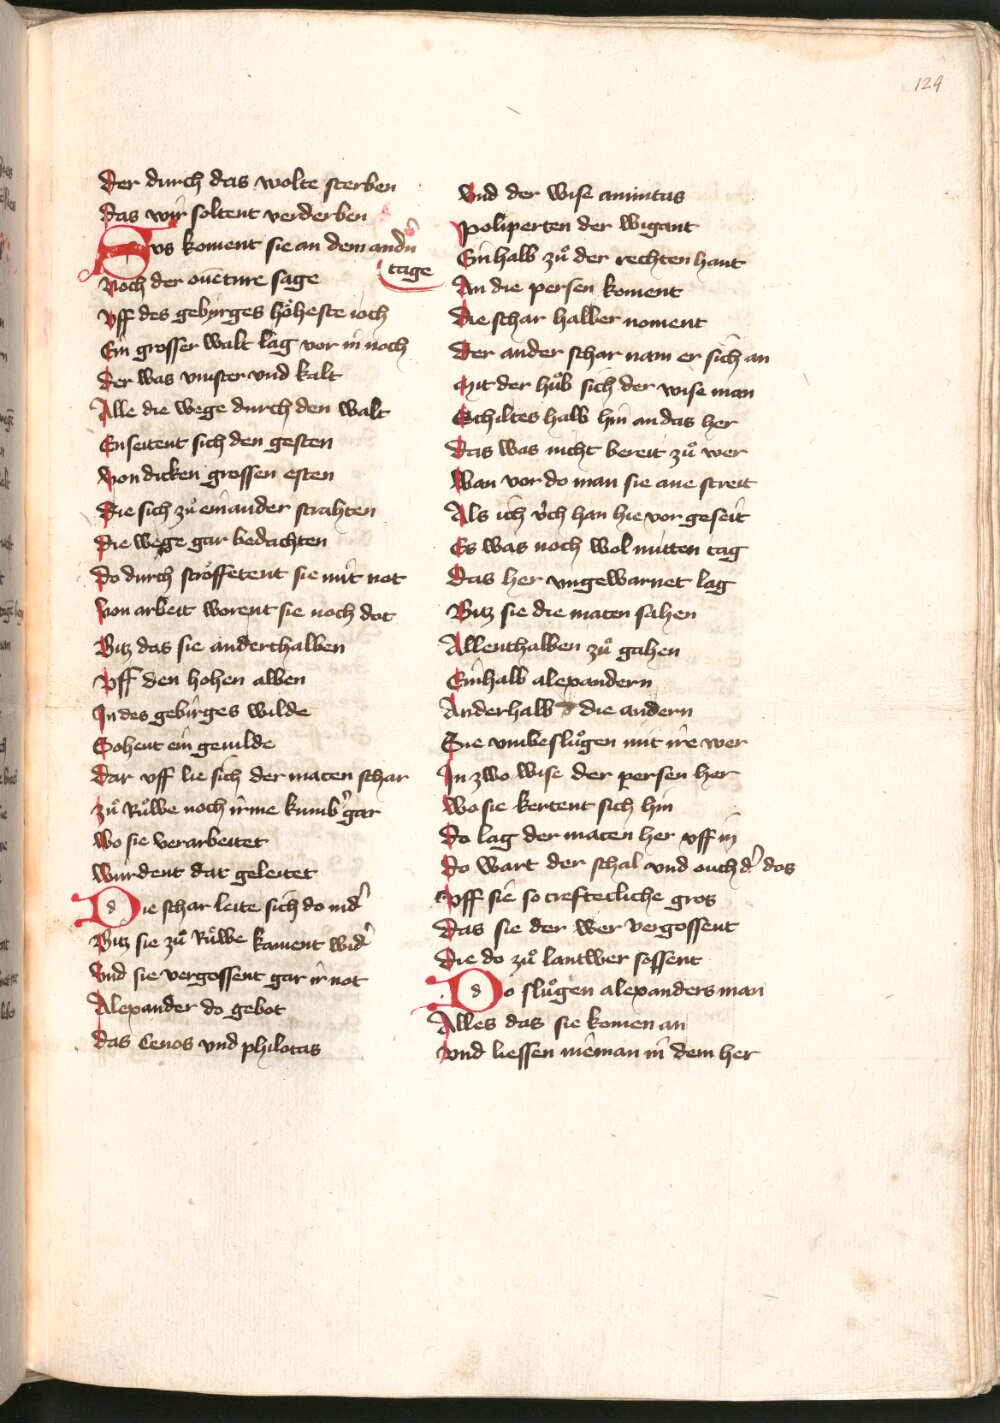 124
Der durch das wolte sterben
Das wir soltent verderben
Svs koment sie an dem andn̄
tage
Noch der ouēture sage
Vff des gebyrges hoͤheste ioch
Ein grosser walt lag vor in noch
Der was vinster vnd kalt
Alle die wege durch den walt
Enseitent sich den gesten
Von dicken grossen esten
Die sich zuͦ einander strahten
Die wege gar bedachten
Do durch stroͤffetent sie mit not
Von arbeit worent sie noch dot
Bitz das sie anderthalben
Vff den hohen alben
In des gebirges wilde
Sohent ein gevilde
Dar vff lie sich der maten schar
Zuͦ Ruͦwe noch irme kumb̾ gar
Wo sie verarbeitet
Wurdent dat geleitet
Die schar leite sich do nid̾
Bitz sie zuͦ Ruͦwe kament wid̾
Vnd sie vergossent gar ir not
Alexander do gebot
Das Cenos vnd philotas
Vnd der wise amintas
Poliperten der wigant
Einhalb zuͦ der rechten hant
An die persen koment
Die schar halber noment
Der ander schar nam er sich an
Mit der huͦb sich der wise man
Schiltes halb hin an das her
Das was nicht bereit zuͦ wer
Wan vor do man sie ane streit
Als ich v́ch han hie vor geseit
Es was noch wol mitten tag
Das her vngewarnet lag
Bitz sie die maten sahen
Allenthalben zuͦ gahen
Einhalb alexandern
Anderhalb die andern
Sie vmbesluͦgen mit ire wer
In zwo wise der persen her
Wo sie kertent sich hin
Do lag der maten her vff in
Do wart der schal vnd ouch d̾ dos
Vff sie so crefftecliche gros
Das sie der wer vergossent
Die do zuͦ lantwer sossent
Do sluͦgen alexanders man
Alles das sie komen an
Vnd liessen nieman in dem her